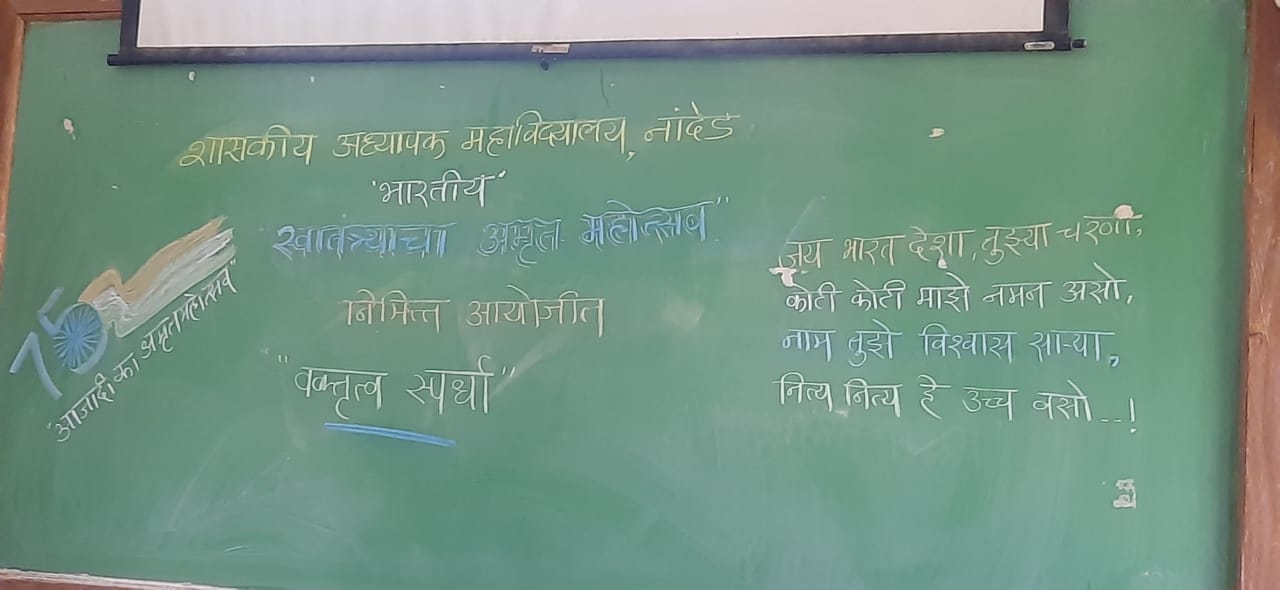 शासकीय अध्यापक महाविद्यालय, नांदेड
'भारतीय'
"स्वातंत्र्याचा अमृत महोत्सव"
निमित्त आयोजीत
"वक्तृत्व स्पर्धा"
75
"आजादी का अमृतमहोत्सव"
जय भारत देशा, तुझ्या चरणी,
कोटी कोटी माझे नमन असो,
नाम तुझे विश्वास साऱ्या,
नित्य नित्य हे उच्च वसो...!